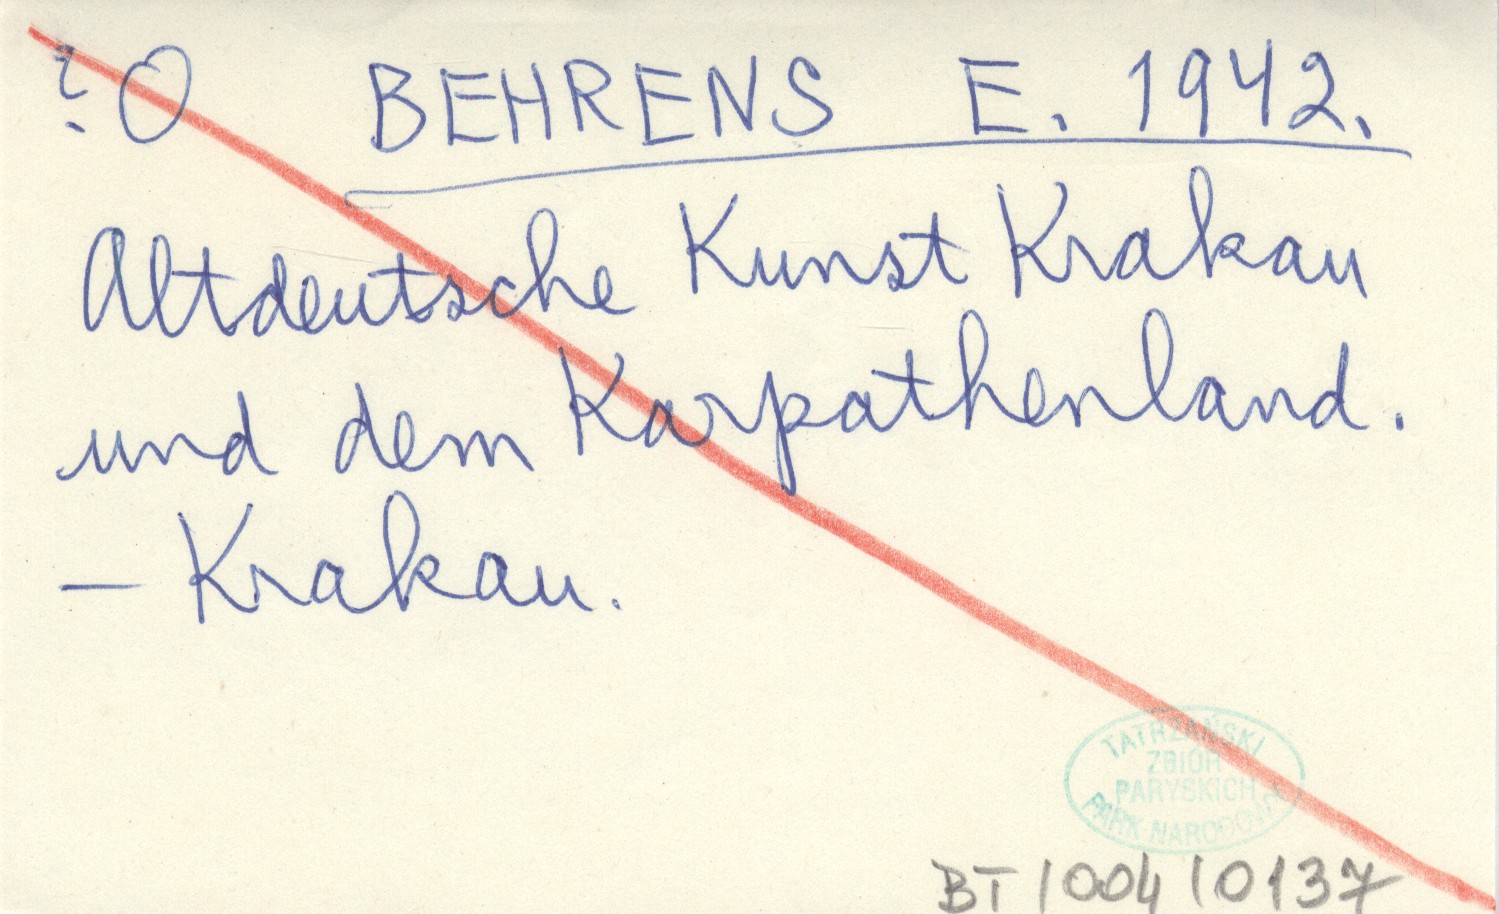 ? O BEHRENS E. 1942.
Altdeutsche Kunst Krakau
und dem Karpathenland.
– Krakau.
TATRZAŃSKI
ZBIÓR
PARYSKICH
PARK NARODOWY
BT 1004 10137